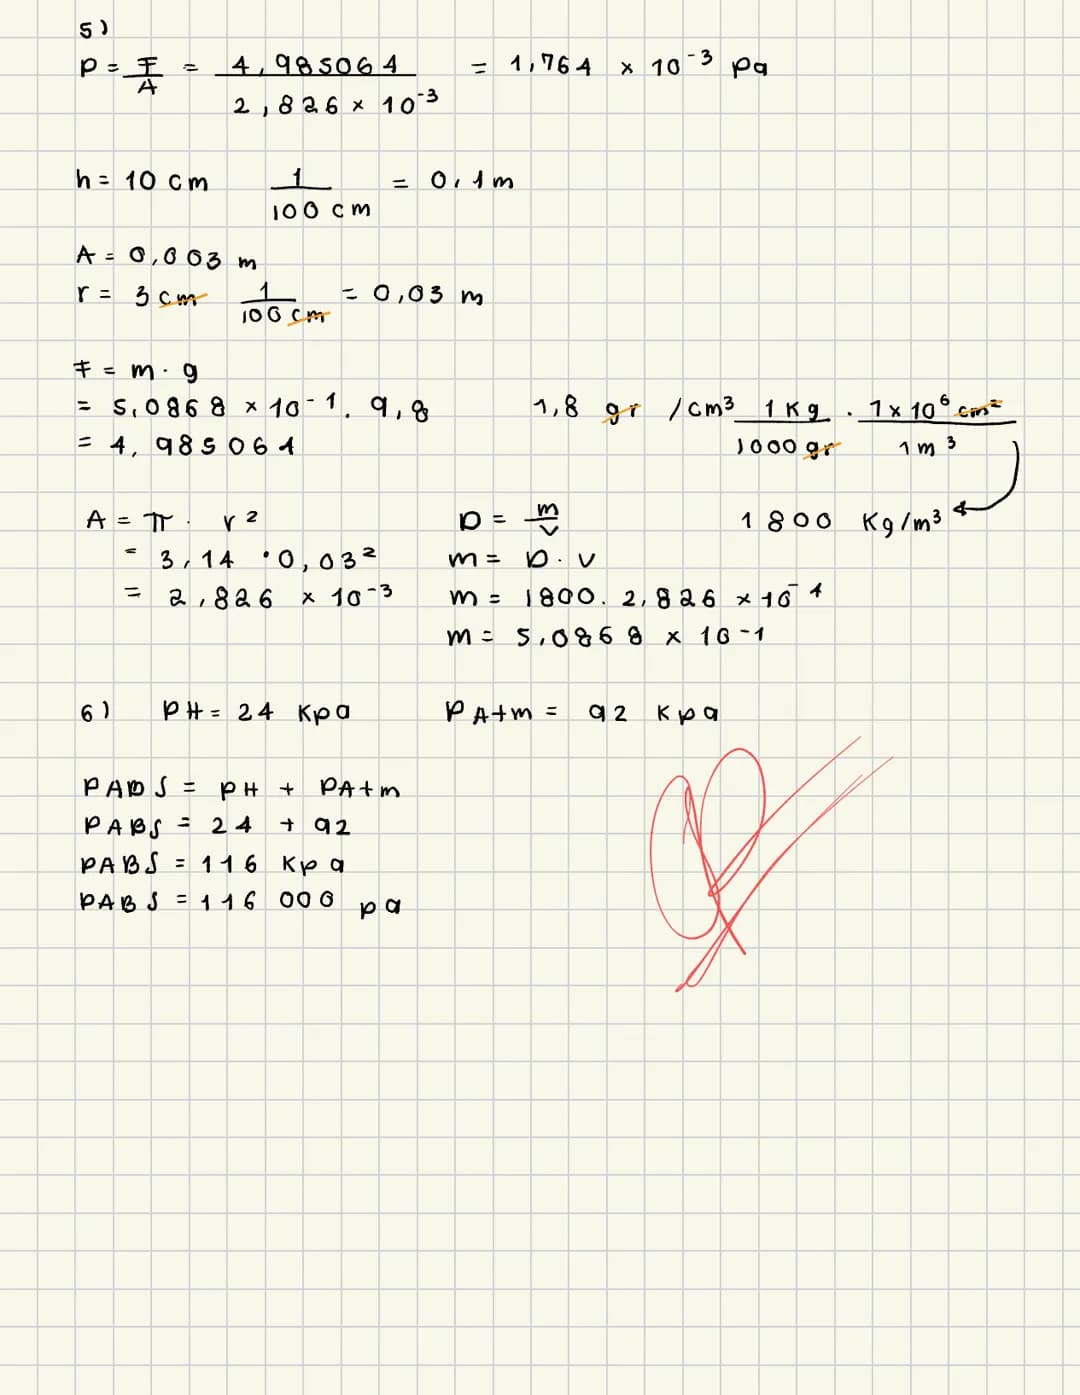 5)
P = F/A = 4,985064 / 2,826 × 10⁻³ = 1,764 × 10⁻³ pa
h = 10 cm 1 / 100 cm = 0,1 m
A = 0,003 m
r = 3 cm 1 / 100 cm = 0,03 m
F = m · g
= 5,0868 × 10⁻¹ . 9,8
= 4,985064
1,8 gr /cm³ 1 Kg / 1000 gr · 1 × 10⁶ cm² / 1 m³
1800 Kg/m³
A = π · r²
= 3,14 · 0,03²
= 2,826 × 10⁻³
D = m/v
m = D . v
m = 1800 . 2,826 × 10⁻⁴
m = 5,0868 × 10⁻¹
6) PH = 24 Kpa PAtm = 92 Kpa
PADS = PH + PAtm
PABS = 24 + 92
PABS = 116 Kpa
PABS = 116 000 pa